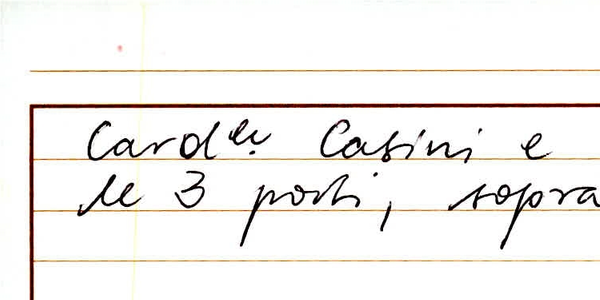 Card.le Casini e
3 posti, sopra